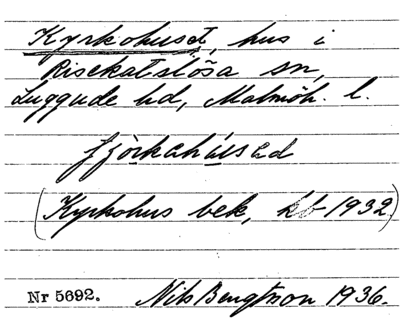 Kyrkohuset, hus i
Risekatslösa sn,
Luggude hd, Malmöh. l.
(Kyrkohus bek, kb 1932)
Nr 5692. Nils Bengtsson 1936.